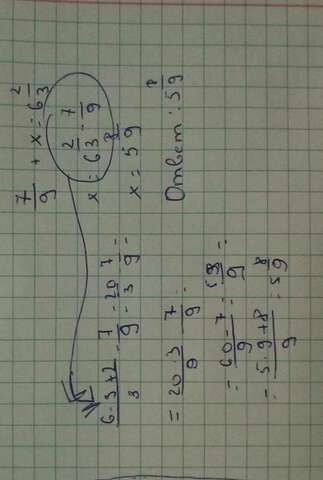 7/9 + x = 6 2/3
x = 6 2/3 - 7/9
x = 5 8/9
Ответ: 5 8/9
(6·3+2)/3 - 7/9 = 20/3 - 7/9 =
= 20 3/9 7/9 =
= (60-7)/9 = 53/9 =
= (5·9+8)/9 = 5 8/9